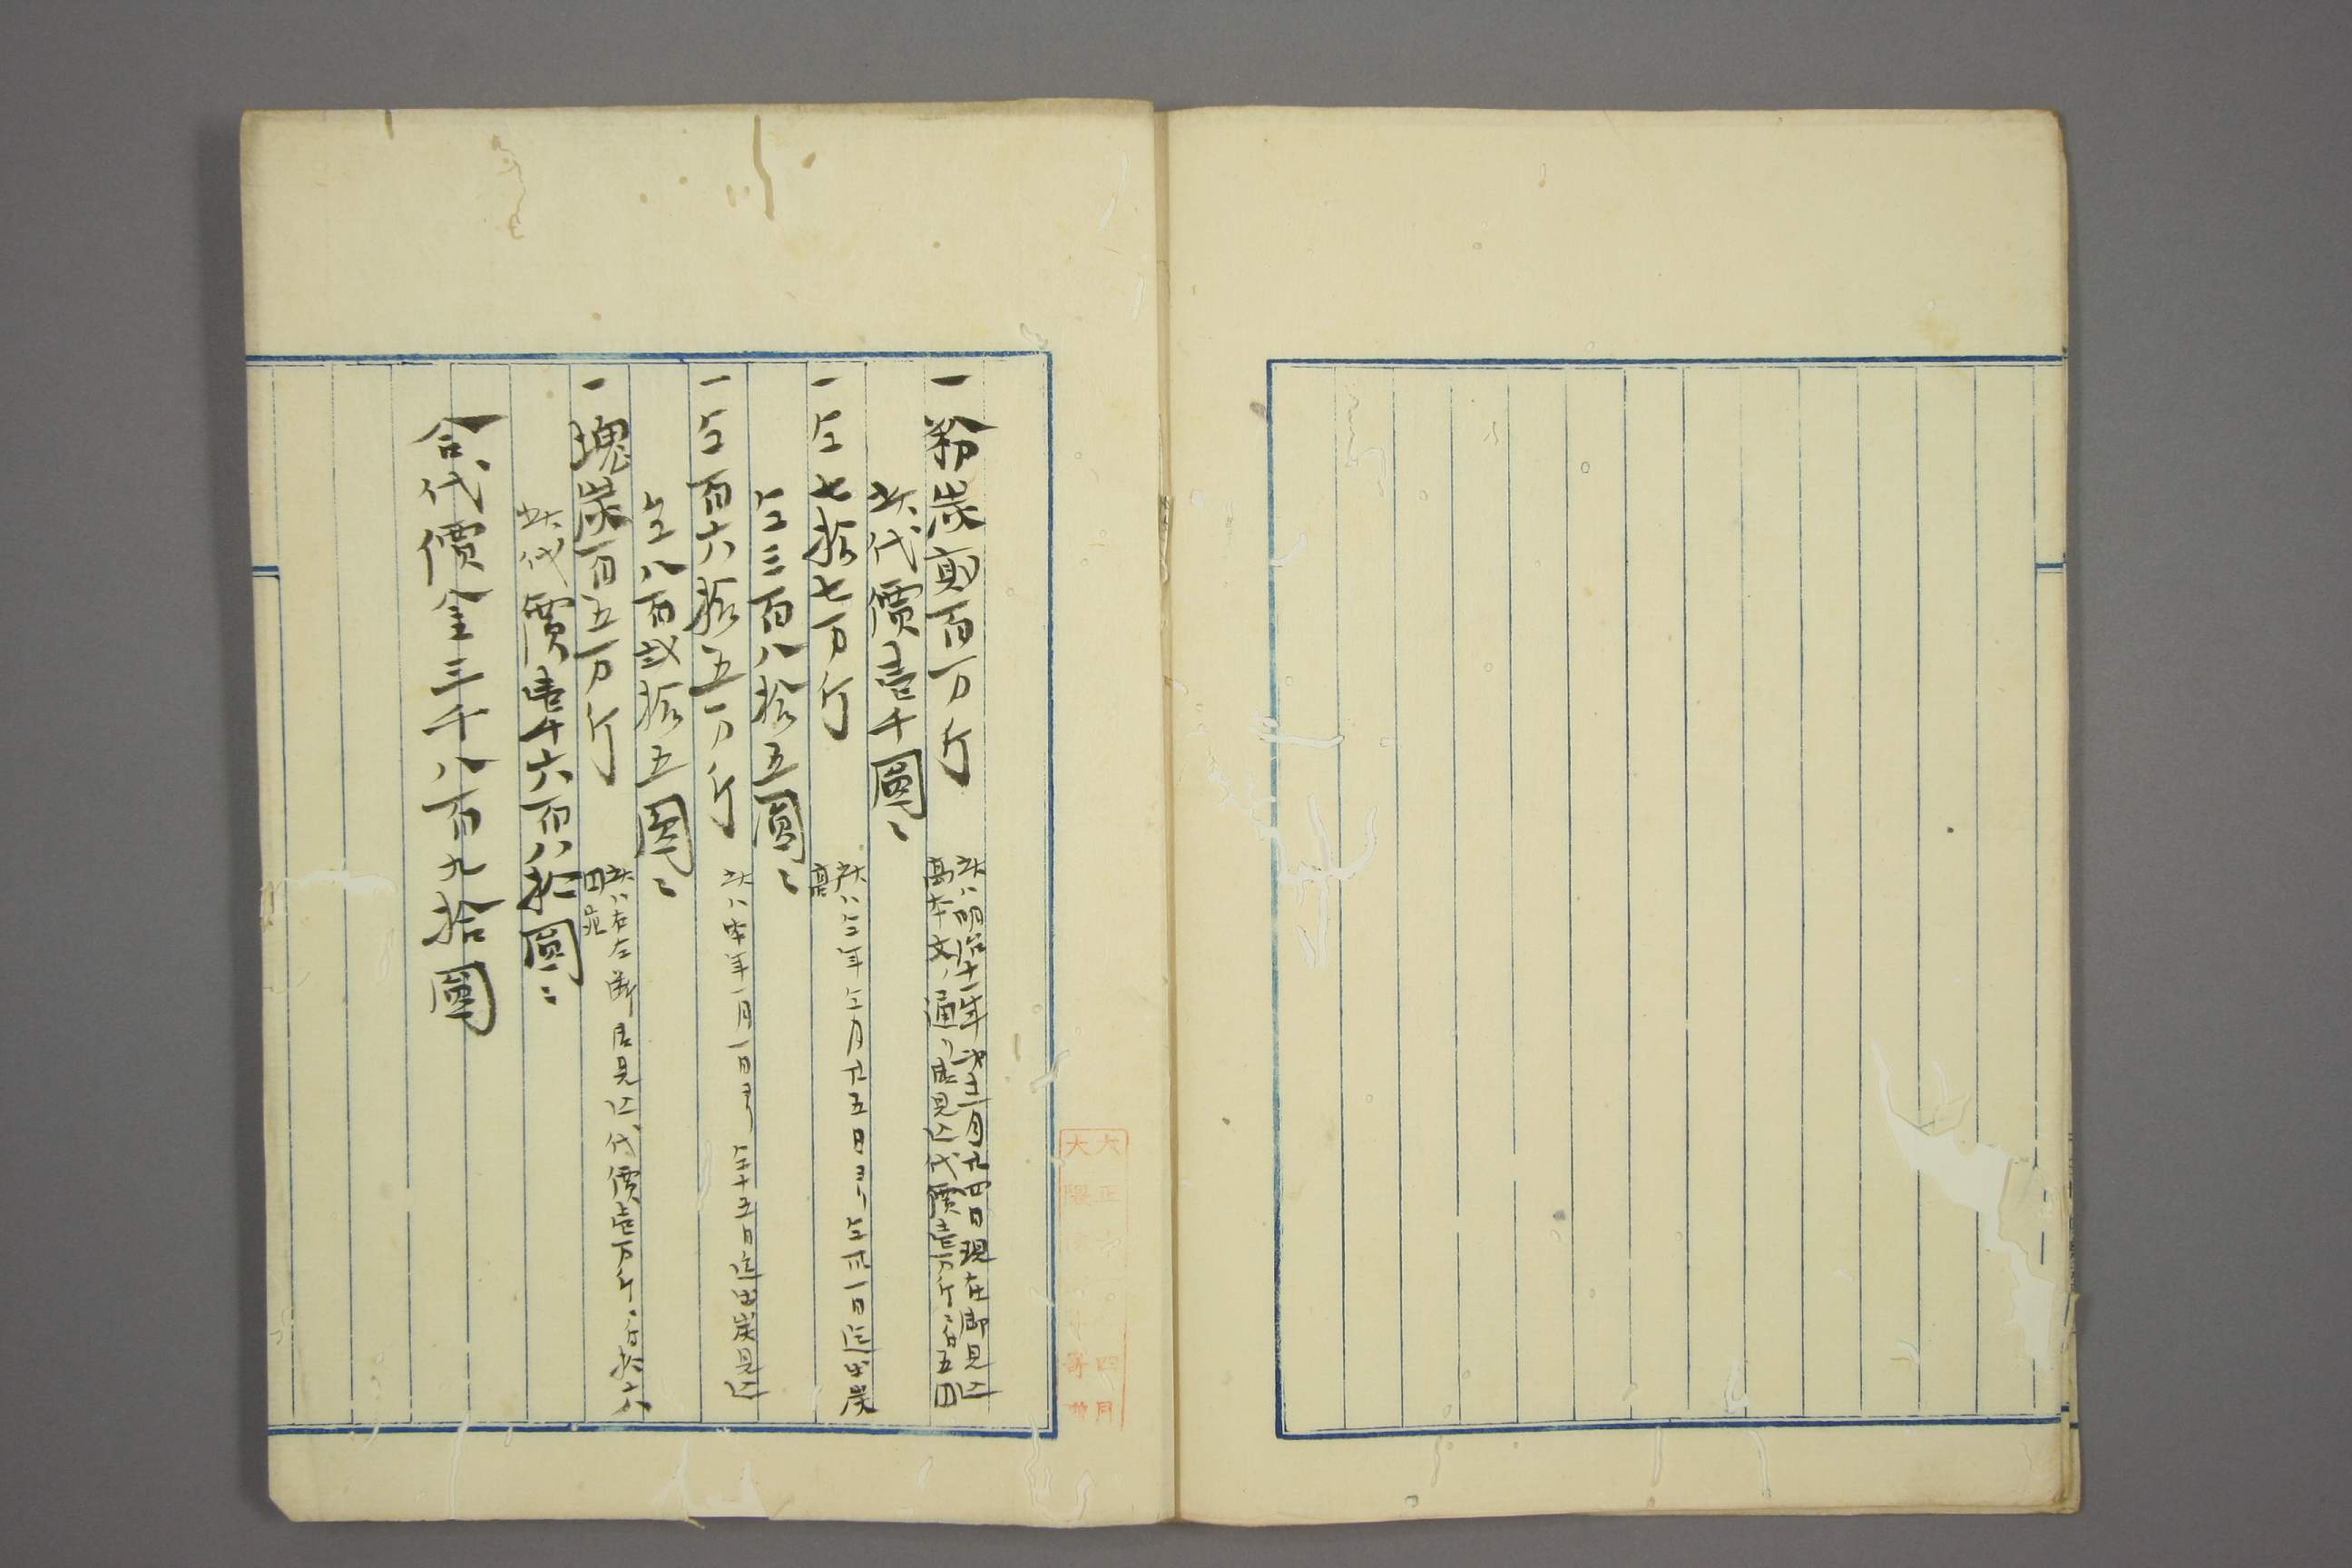 一粉炭貳百万斤
此ハ明治十一年第十二月廿四日現在御見込
高本文ノ通リ尤見込代價壱万斤ニ付五円
此代價壹千圓ニ
一仝七拾七万斤
此ハ仝年仝月廿五日ヨリ仝卅一日迄出炭
高
仝三百八拾五圓ニ
一仝百六拾五万斤
此ハ本年一月一日ヨリ仝十五日迄出炭見込
仝八百弐拾五圓ニ
一塊炭百五万斤
此ハ右左断 見込代價壱万斤ニ付拾六
円
此代價壹千六百八拾圓ニ
合代價金三千八百九拾圓
大正 四月
大隈 寄贈